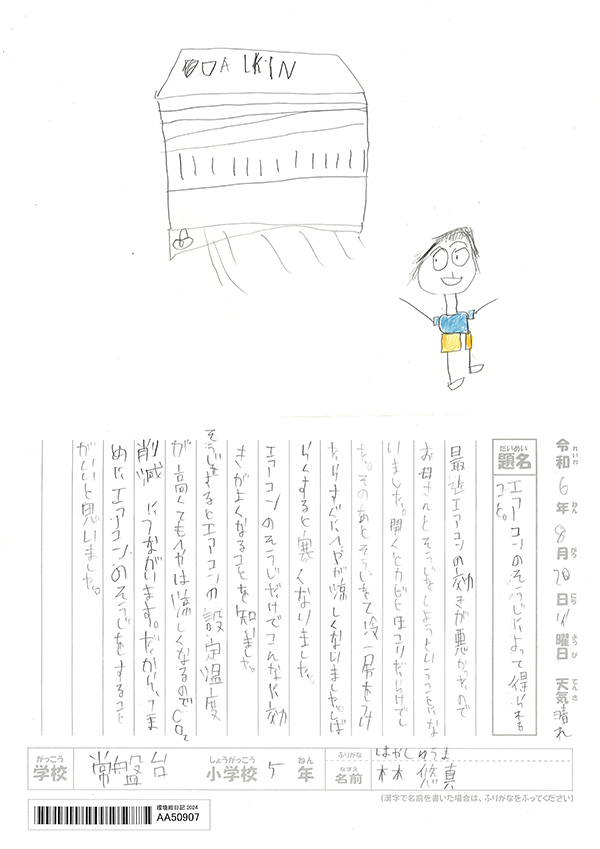 DAIKIN
令和6年8月20日火曜日 天気晴れ
れいわ ねん がつ にち ようび てんき
だいめい
題名
エアコンのそうじによって得られる
こと。
最近エアコンの効きが悪かったので
お母さんとそうじをしようということにな
りました。開くとカビとホコリだらけでし
た。そのあとそうじをして冷房をつけ
たらすぐにへやが涼しくなりました。しば
らくすると寒くなりました。
エアコンのそうじだけでこんなに効
きがよくなることを知りました。
そうじをするとエアコンの設定温度
が高くてもへやは涼しくなるのでCO2
削減につながります。だから、こま
めにエアコンのそうじをすること
がいいと思いました。
がっこう
学校
常盤台
しょうがっこう
小学校
5
ねん
年
ふりがな
はやしゆうま
なまえ
名前
林 悠真
(漢字で名前を書いた場合は、ふりがなをふってください)
環境絵日記 2024
AA50907